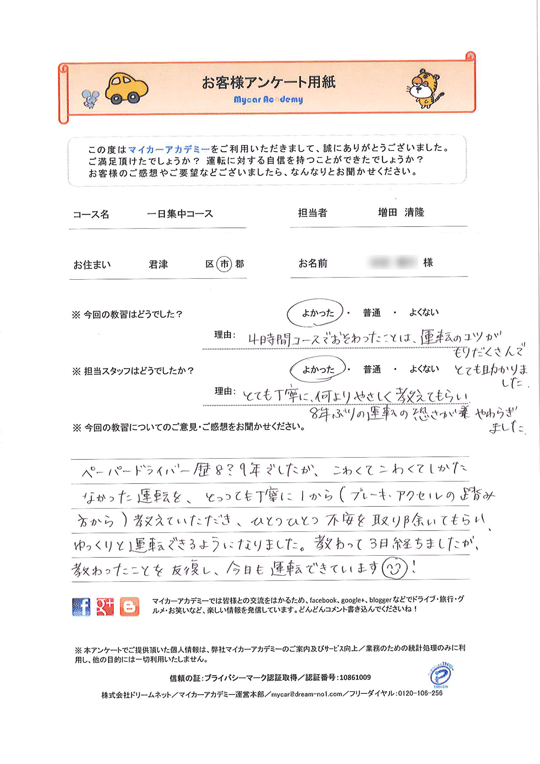 お客様アンケート用紙
Mycar Academy
この度はマイカーアカデミーをご利用いただきまして、誠にありがとうございました。
ご満足頂けたでしょうか？ 運転に対する自信を持つことができたでしょうか？
お客様のご感想やご要望などございましたら、なんなりとお聞かせください。
コース名 一日集中コース 担当者 増田 清隆
お住まい 君津 区 市 郡 お名前 様
※ 今回の教習はどうでした？ よかった ・ 普通 ・ よくない
理由: 4時間コースでおそわったことは、運転のコツが
もりだくさんで
とても助かりま
した。
※ 担当スタッフはどうでしたか？ よかった ・ 普通 ・ よくない
理由: とても丁寧に、何よりやさしく教えてもらい
8年ぶりの運転の恐さが やわらぎ
ました。
※ 今回の教習についてのご意見・ご感想をお聞かせください。
ペーパードライバー歴8?9年でしたが、こわくてこわくてしかた
なかった運転を、とっっても丁寧に1から(ブレーキ、アクセルの踏み
方から)教えていただき、ひとつひとつ不安を取り除いてもらい、
ゆっくりと運転できるようになりました。教わって3日経ちましたが、
教わったことを反復し、今日も運転できています!
マイカーアカデミーでは皆様との交流をはかるため、facebook、google+、bloggerなどでドライブ・旅行・グ
ルメ・お笑いなど、楽しい情報を発信しています。どんどんコメント書き込んでくださいね！
※ 本アンケートでご提供頂いた個人情報は、弊社マイカーアカデミーのご案内及びサービス向上／業務のための統計処理のみに利
用し、他の目的には一切利用いたしません。
信頼の証：プライバシーマーク認証取得／認証番号：10861009
株式会社ドリームネット／マイカーアカデミー運営本部／mycar@dream-no1.com／フリーダイヤル：0120-106-256